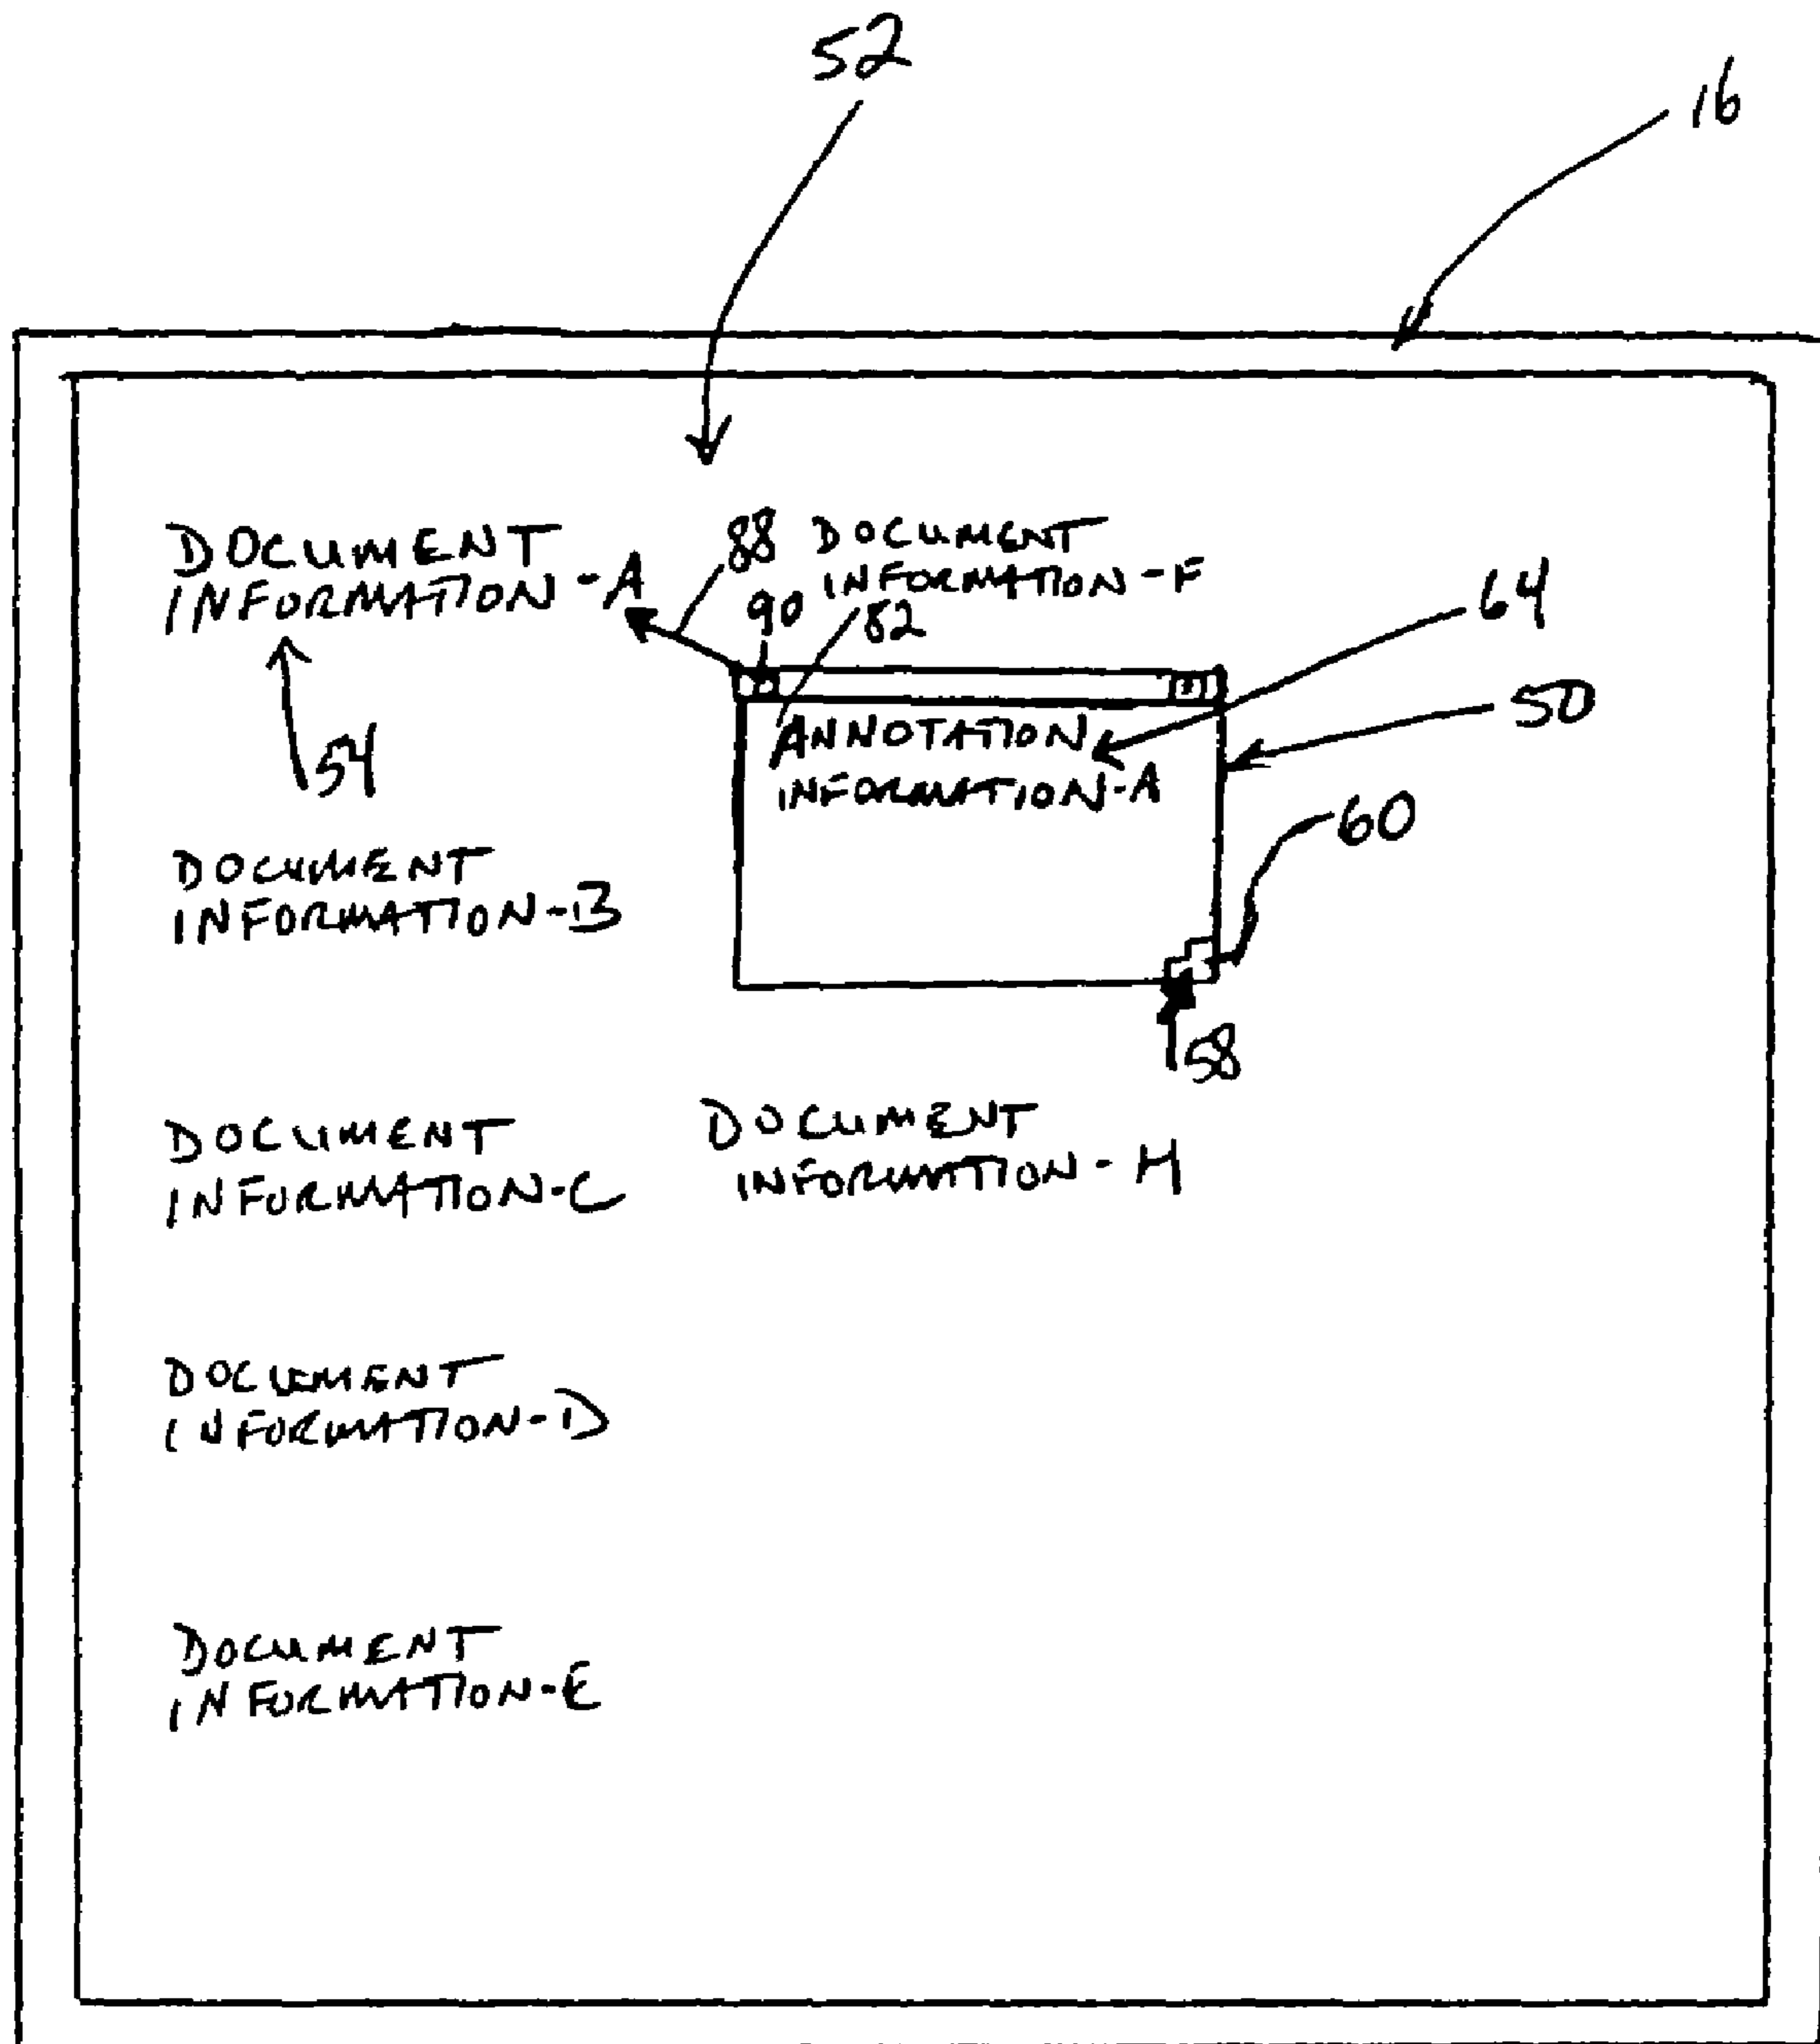 52
16
DOCUMENT
INFORMATION-A
88
DOCUMENT
INFORMATION-F
90
82
64
54
ANNOTATION
INFORMATION-A
50
60
DOCUMENT
INFORMATION-B
58
DOCUMENT
INFORMATION-C
DOCUMENT
INFORMATION-H
DOCUMENT
INFORMATION-D
DOCUMENT
INFORMATION-E